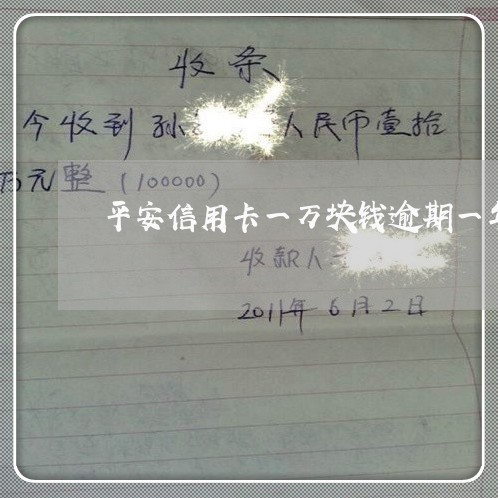 收条
今收到孙 人民币壹拾
万元整（100000）
平安信用卡一万块钱逾期一年
收款人
2011年6月2日